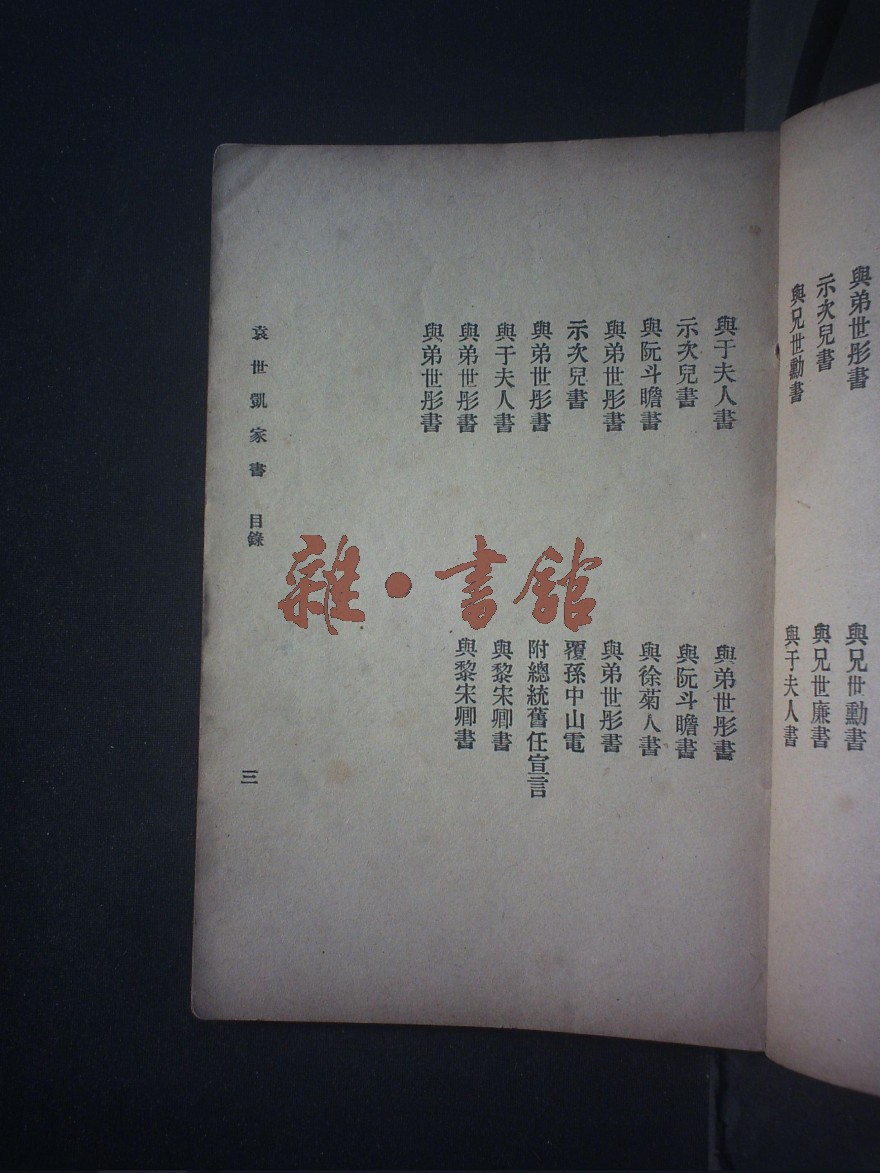 與弟世彤書
示次兒書
與兄世勳書
與兄世勳書
與兄世廉書
與于夫人書
與于夫人書
示次兒書
與阮斗瞻書
與弟世彤書
示次兒書
與弟世彤書
與于夫人書
與弟世彤書
與弟世彤書
與弟世彤書
與阮斗瞻書
與徐菊人書
與弟世彤書
覆孫中山電
附總統舊任宣言
與黎宋卿書
與黎宋卿書
袁世凱家書 目錄
三
雜·書館